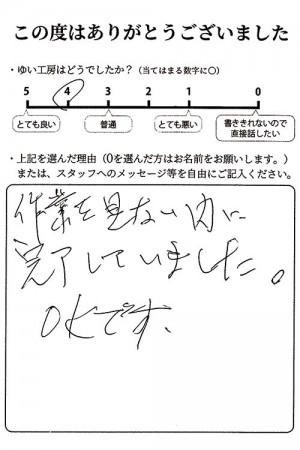 この度はありがとうございました
・ゆい工房はどうでしたか？（当てはまる数字に〇）
5 4 3 2 1 0
とても良い 普通 とても悪い 書ききれないので直接話したい
・上記を選んだ理由（0を選んだ方はお名前をお願いします。）
または、スタッフへのメッセージ等を自由にご記入ください。
作業を見ない内に
完了していました。
OKです、